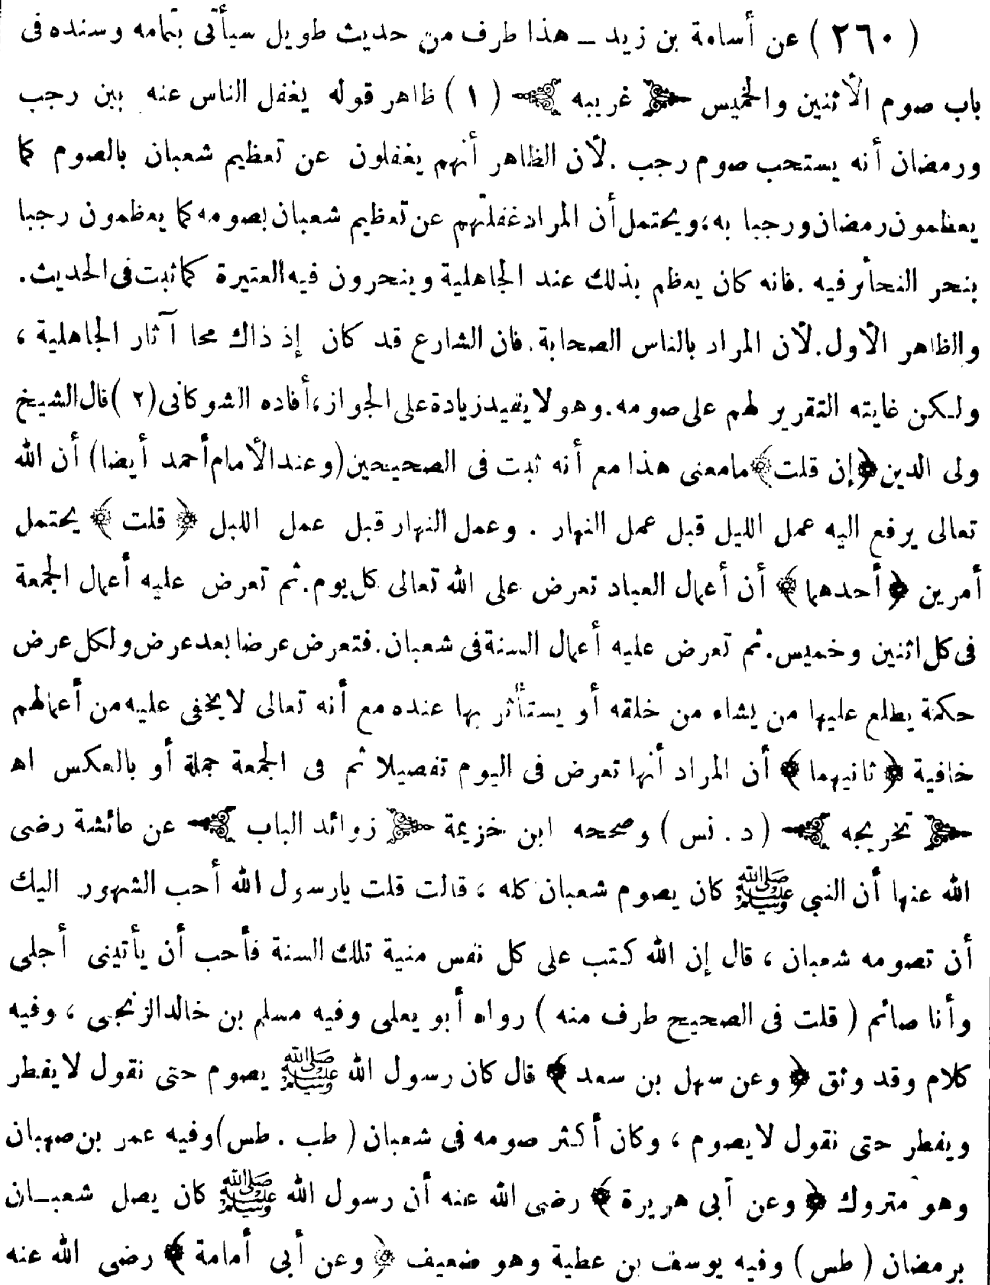 ( ٢٦٠ ) عن أسامة بن زيد ــ هذا طرف من حديث طويل سيأتى بتمامه وسنده فى
باب صوم الأثنين والخميس ﴿ غريبه ﴾ ( ١ ) ظاهر قوله يغفل الناس عنه بين رجب
ورمضان أنه يستحب صوم رجب . لأن الظاهر أنهم يغفلون عن تعظيم شعبان بالصوم كما
يعظمون رمضان ورجبا به ؛ ويحتمل أن المراد غفلتهم عن تعظيم شعبان بصومه كما يعظمون رجبا
بنحر النحائر فيه . فانه كان يعظم بذلك عند الجاهلية وينحرون فيه العتيرة كما ثبت فى الحديث .
والظاهر الأول . لأن المراد بالناس الصحابة . فان الشارع قد كان إذ ذاك محا آثار الجاهلية ،
ولكن غايته التقرير لهم على صومه . وهو لا يفيد زيادة على الجواز ، أفاده الشوكانى ( ٢ ) قال الشيخ
ولى الدين ﴿ إن قلت ﴾ ما معنى هذا مع أنه ثبت فى الصحيحين ( وعند الأمام أحمد أيضا ) أن الله
تعالى يرفع اليه عمل الليل قبل عمل النهار . وعمل النهار قبل عمل الليل ﴿ قلت ﴾ يحتمل
أمرين ﴿ أحدهما ﴾ أن أعمال العباد تعرض على الله تعالى كل يوم . ثم تعرض عليه أعمال الجمعة
فى كل اثنين وخميس . ثم تعرض عليه أعمال السنة فى شعبان . فتعرض عرضا بعد عرض ولكل عرض
حكمة يطلع عليها من يشاء من خلقه أو يستأثر بها عنده مع أنه تعالى لا يخفى عليه من أعمالهم
خافية ﴿ ثانيهما ﴾ أن المراد أنها تعرض فى اليوم تفصيلا ثم فى الجمعة جملة أو بالعكس اه
﴿ تخريجه ﴾ ( د . نس ) وصححه ابن خزيمة ﴿ زوائد الباب ﴾ عن عائشة رضى
الله عنها أن النبي ﷺ كان يصوم شعبان كله ، قالت قلت يارسول الله أحب الشهور اليك
أن تصومه شعبان ، قال إن الله كتب على كل نفس منية تلك السنة فأحب أن يأتينى أجلى
وأنا صائم ( قلت فى الصحيح طرف منه ) رواه أبو يعلى وفيه مسلم بن خالد الزنجى ، وفيه
كلام وقد وثق ﴿ وعن سهل بن سعد ﴾ قال كان رسول الله ﷺ يصوم حتى نقول لا يفطر
ويفطر حتى نقول لا يصوم ، وكان أكثر صومه فى شعبان ( طب . طس ) وفيه عمر بن صهبان
وهو متروك ﴿ وعن أبى هريرة ﴾ رضى الله عنه أن رسول الله ﷺ كان يصل شعبـان
برمضان ( طس ) وفيه يوسف بن عطية وهو ضعيف ﴿ وعن أبى أمامة ﴾ رضى الله عنه